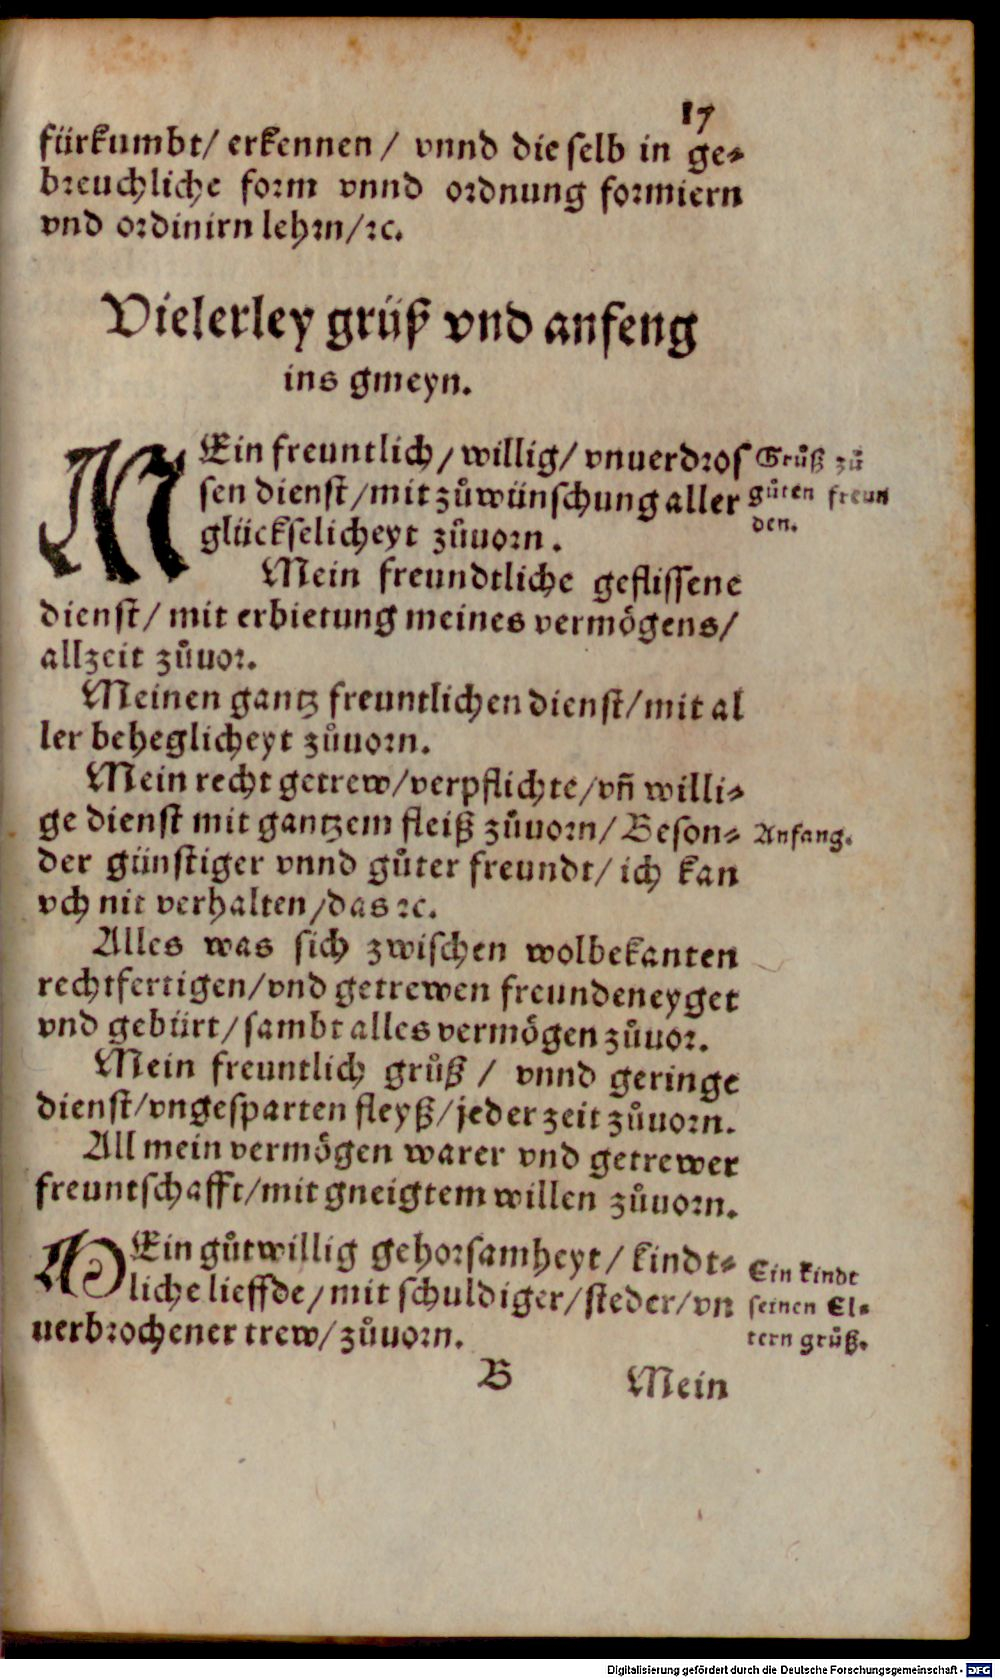 17
fürkumbt/ erkennen / vnnd die selb in ge⸗
breuchliche form vnnd ordnung formiern
vnd ordinirn lehrn/ꝛc.
Vielerley grüß vnd anfeng
ins gmeyn.
MEin freuntlich/ willig/ vnuerdros
sen dienst/mit zůwünschung aller
glückselicheyt zůuorn.
Grůß zů
gůten freun
den.
Mein freundtliche geflissene
dienst/ mit erbietung meines vermögens/
allzeit zůuor.
Meinen gantz freuntlichen dienst/mit al
ler beheglicheyt zůuorn.
Mein recht getrew/verpflichte/vñ willi⸗
ge dienst mit gantzem fleiß zůuorn/ Beson⸗
Anfang.
der günstiger vnnd gůter freundt/ ich kan
vch nit verhalten/das ꝛc.
Alles was sich zwischen wolbekanten
rechtfertigen/vnd getrewen freunden eyget
vnd gebürt/sambt alles vermögen zůuor.
Mein freuntlich grůß / vnnd geringe
dienst/vngesparten fleyß/jeder zeit zůuorn.
All mein vermögen warer vnd getrewer
freuntschafft/mit gneigtem willen zůuorn.
MEin gůtwillig gehorsamheyt/ kindt⸗
liche lieffde/mit schuldiger/steder/vn
uerbrochener trew/zůuorn.
Ein kindt
seinen El⸗
tern grůß.
B
Mein
Digitalisierung gefördert durch die Deutsche Forschungsgemeinschaft - DFG